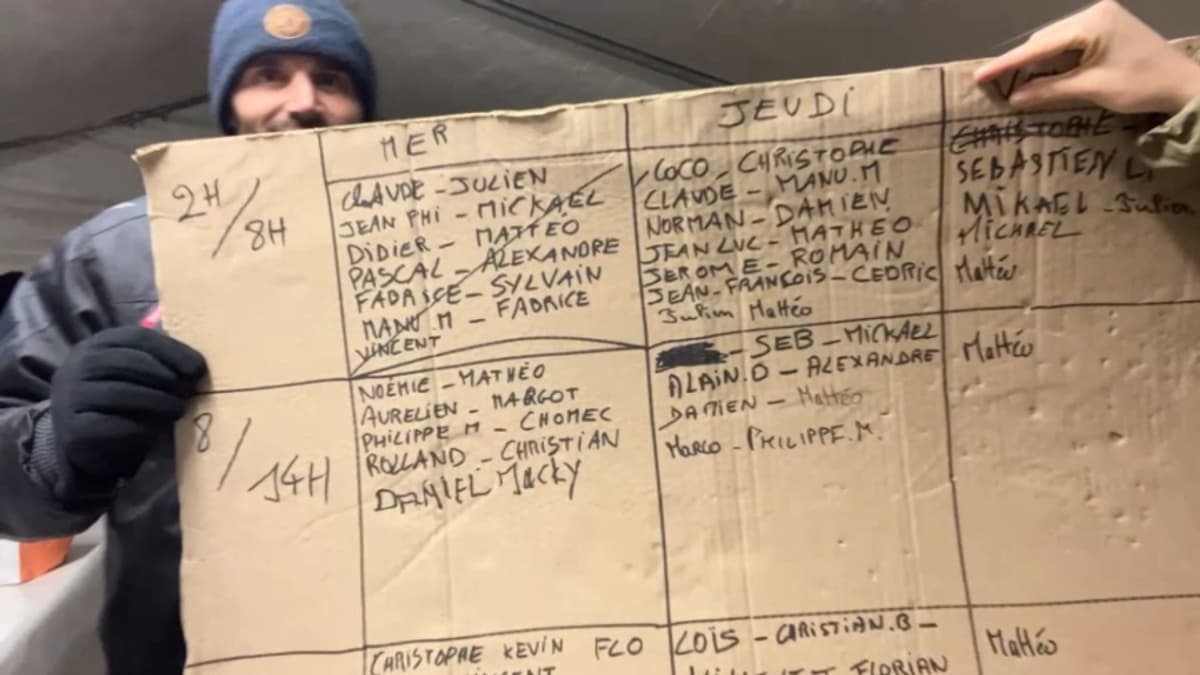 MER
JEUDI
2H/8H
CLAUDE - JULIEN
JEAN PHI - MICKAEL
DIDIER - MATTÉO
PASCAL - ALEXANDRE
FABRICE - SYLVAIN
MANU.M - FABRICE
VINCENT
COCO - CHRISTOPHE
CLAUDE - MANU.M
NORMAN - DAMIEN
JEAN LUC - MATHEO
JEROME - ROMAIN
JEAN-FRANÇOIS - CEDRIC
Julien Mattéo
CHRISTOPHE -
SEBASTIEN
MIKAEL - Julien
MICHAEL
Mattéo
8/14H
NOÉMIE - MATHÉO
AURELIEN - MARGOT
PHILIPPE M - CHOMEC
ROLLAND - CHRISTIAN
DANIEL Macky
- SEB - MICKAEL
ALAIN.O - ALEXANDRE
DAMIEN - Mattéo
Marco - PHILIPPE.M.
Mattéo
CHRISTOPHE KEVIN FLO
LOÏS - CHRISTIAN.B -
FLORIAN
Mattéo